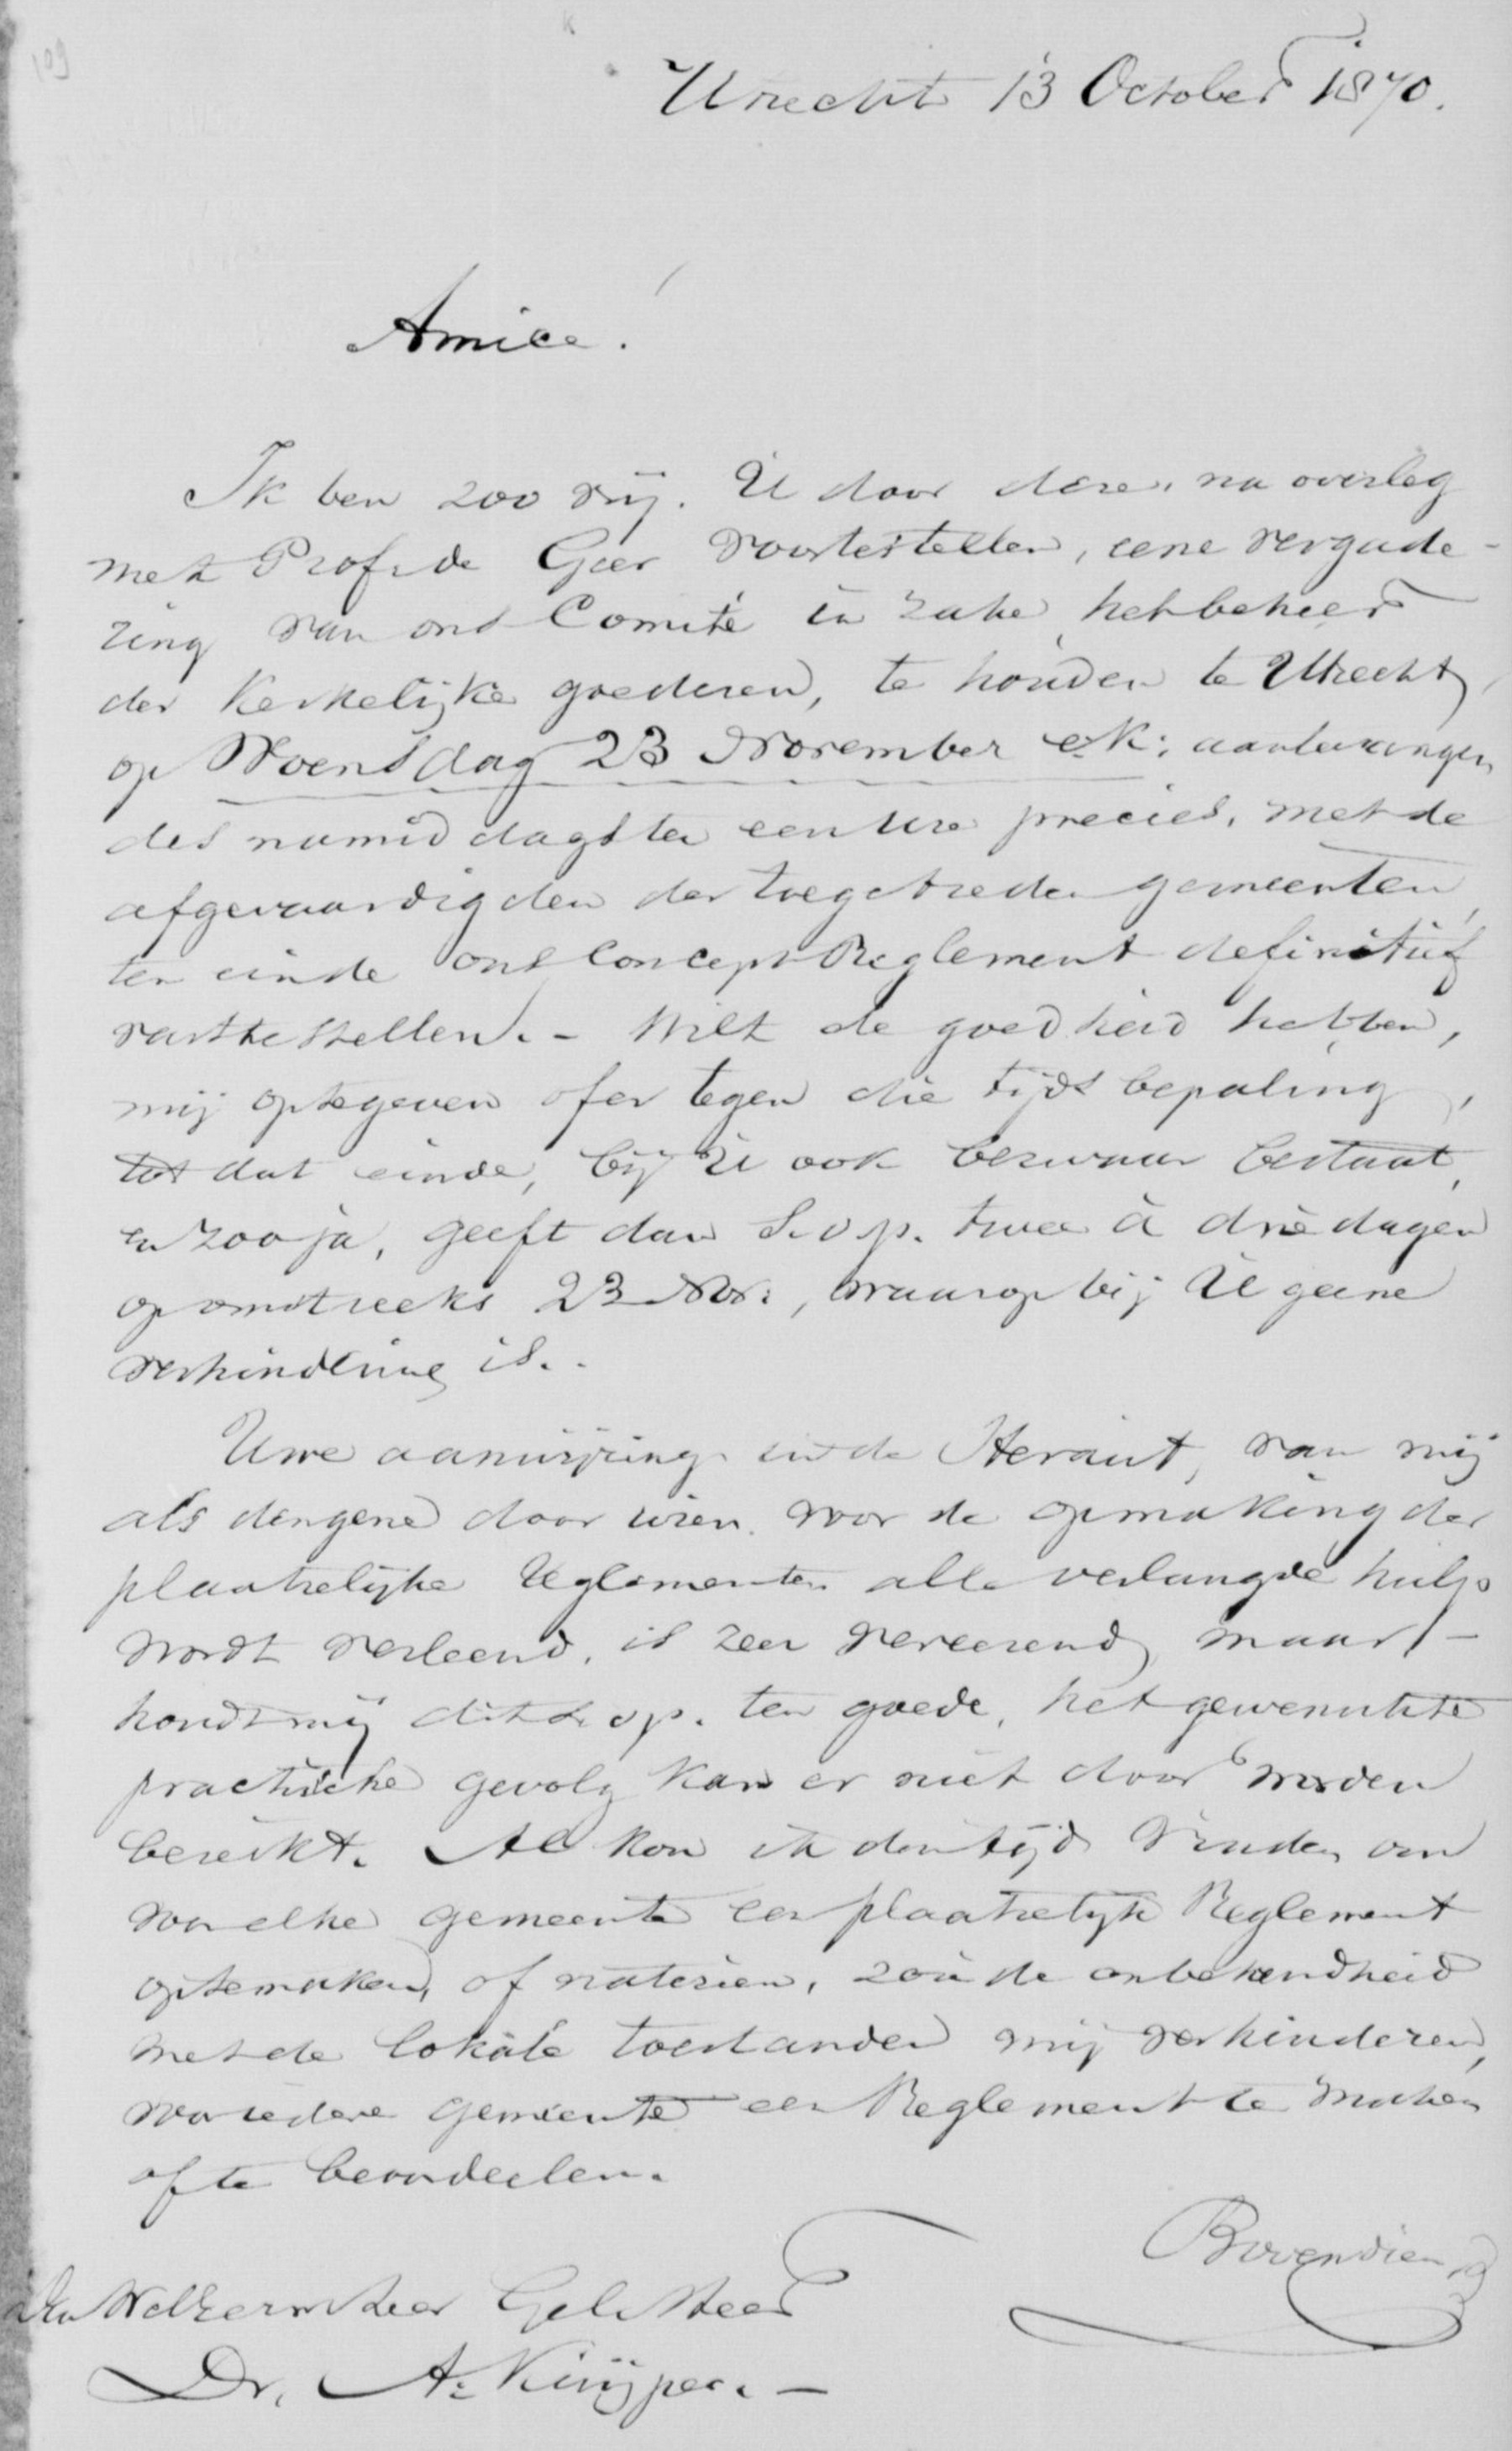 109
Utrecht 13 October 1870.
Amice!
Ik ben zoo vrij. U door deze, na overleg
met Prof. de Geer voortestellen, eene vergade-
ring van ons Comité in zake het beheer
der Kerkelijke goederen, te houden te Utrecht,
op Woensdag 23 November e.k: aantevangen
des namiddags ten een ure precies, met de
afgevaardigden der toegetreden gemeenten,
ten einde ons Concept-Reglement definitief
vasttestellen. - Wilt de goedheid hebben,
mij optegeven of er tegen die tijdsbepaling,
tot dat einde, bij U ook bezwaar bestaat,
en zoo ja, geeft dan S.v.p. twee à drie dagen
op omstreeks 23 Nov:, waarop bij U geene
verhindering is.
Uwe aanwijzing in de Heraut, van mij
als dengene door wien voor de opmaking der
plaatselijke Reglementen alle verlangde hulp
wordt verleend, is zeer vereerend, maar -
houdt mij dit s.v.p. ten goede, het gewenschte
practische gevolg kan er niet door worden
bereikt. Al kon ik den tijd vinden om
voor elke gemeente een plaatselijk Reglement
optemaken, of natezien, zou de onbekendheid
met de lokale toestanden mij verhinderen,
voor iedere gemeente een Reglement te maken
of te beoordeelen.
Den WelEerw Heer Gel. Heer
Dr. A. Kuijper. -